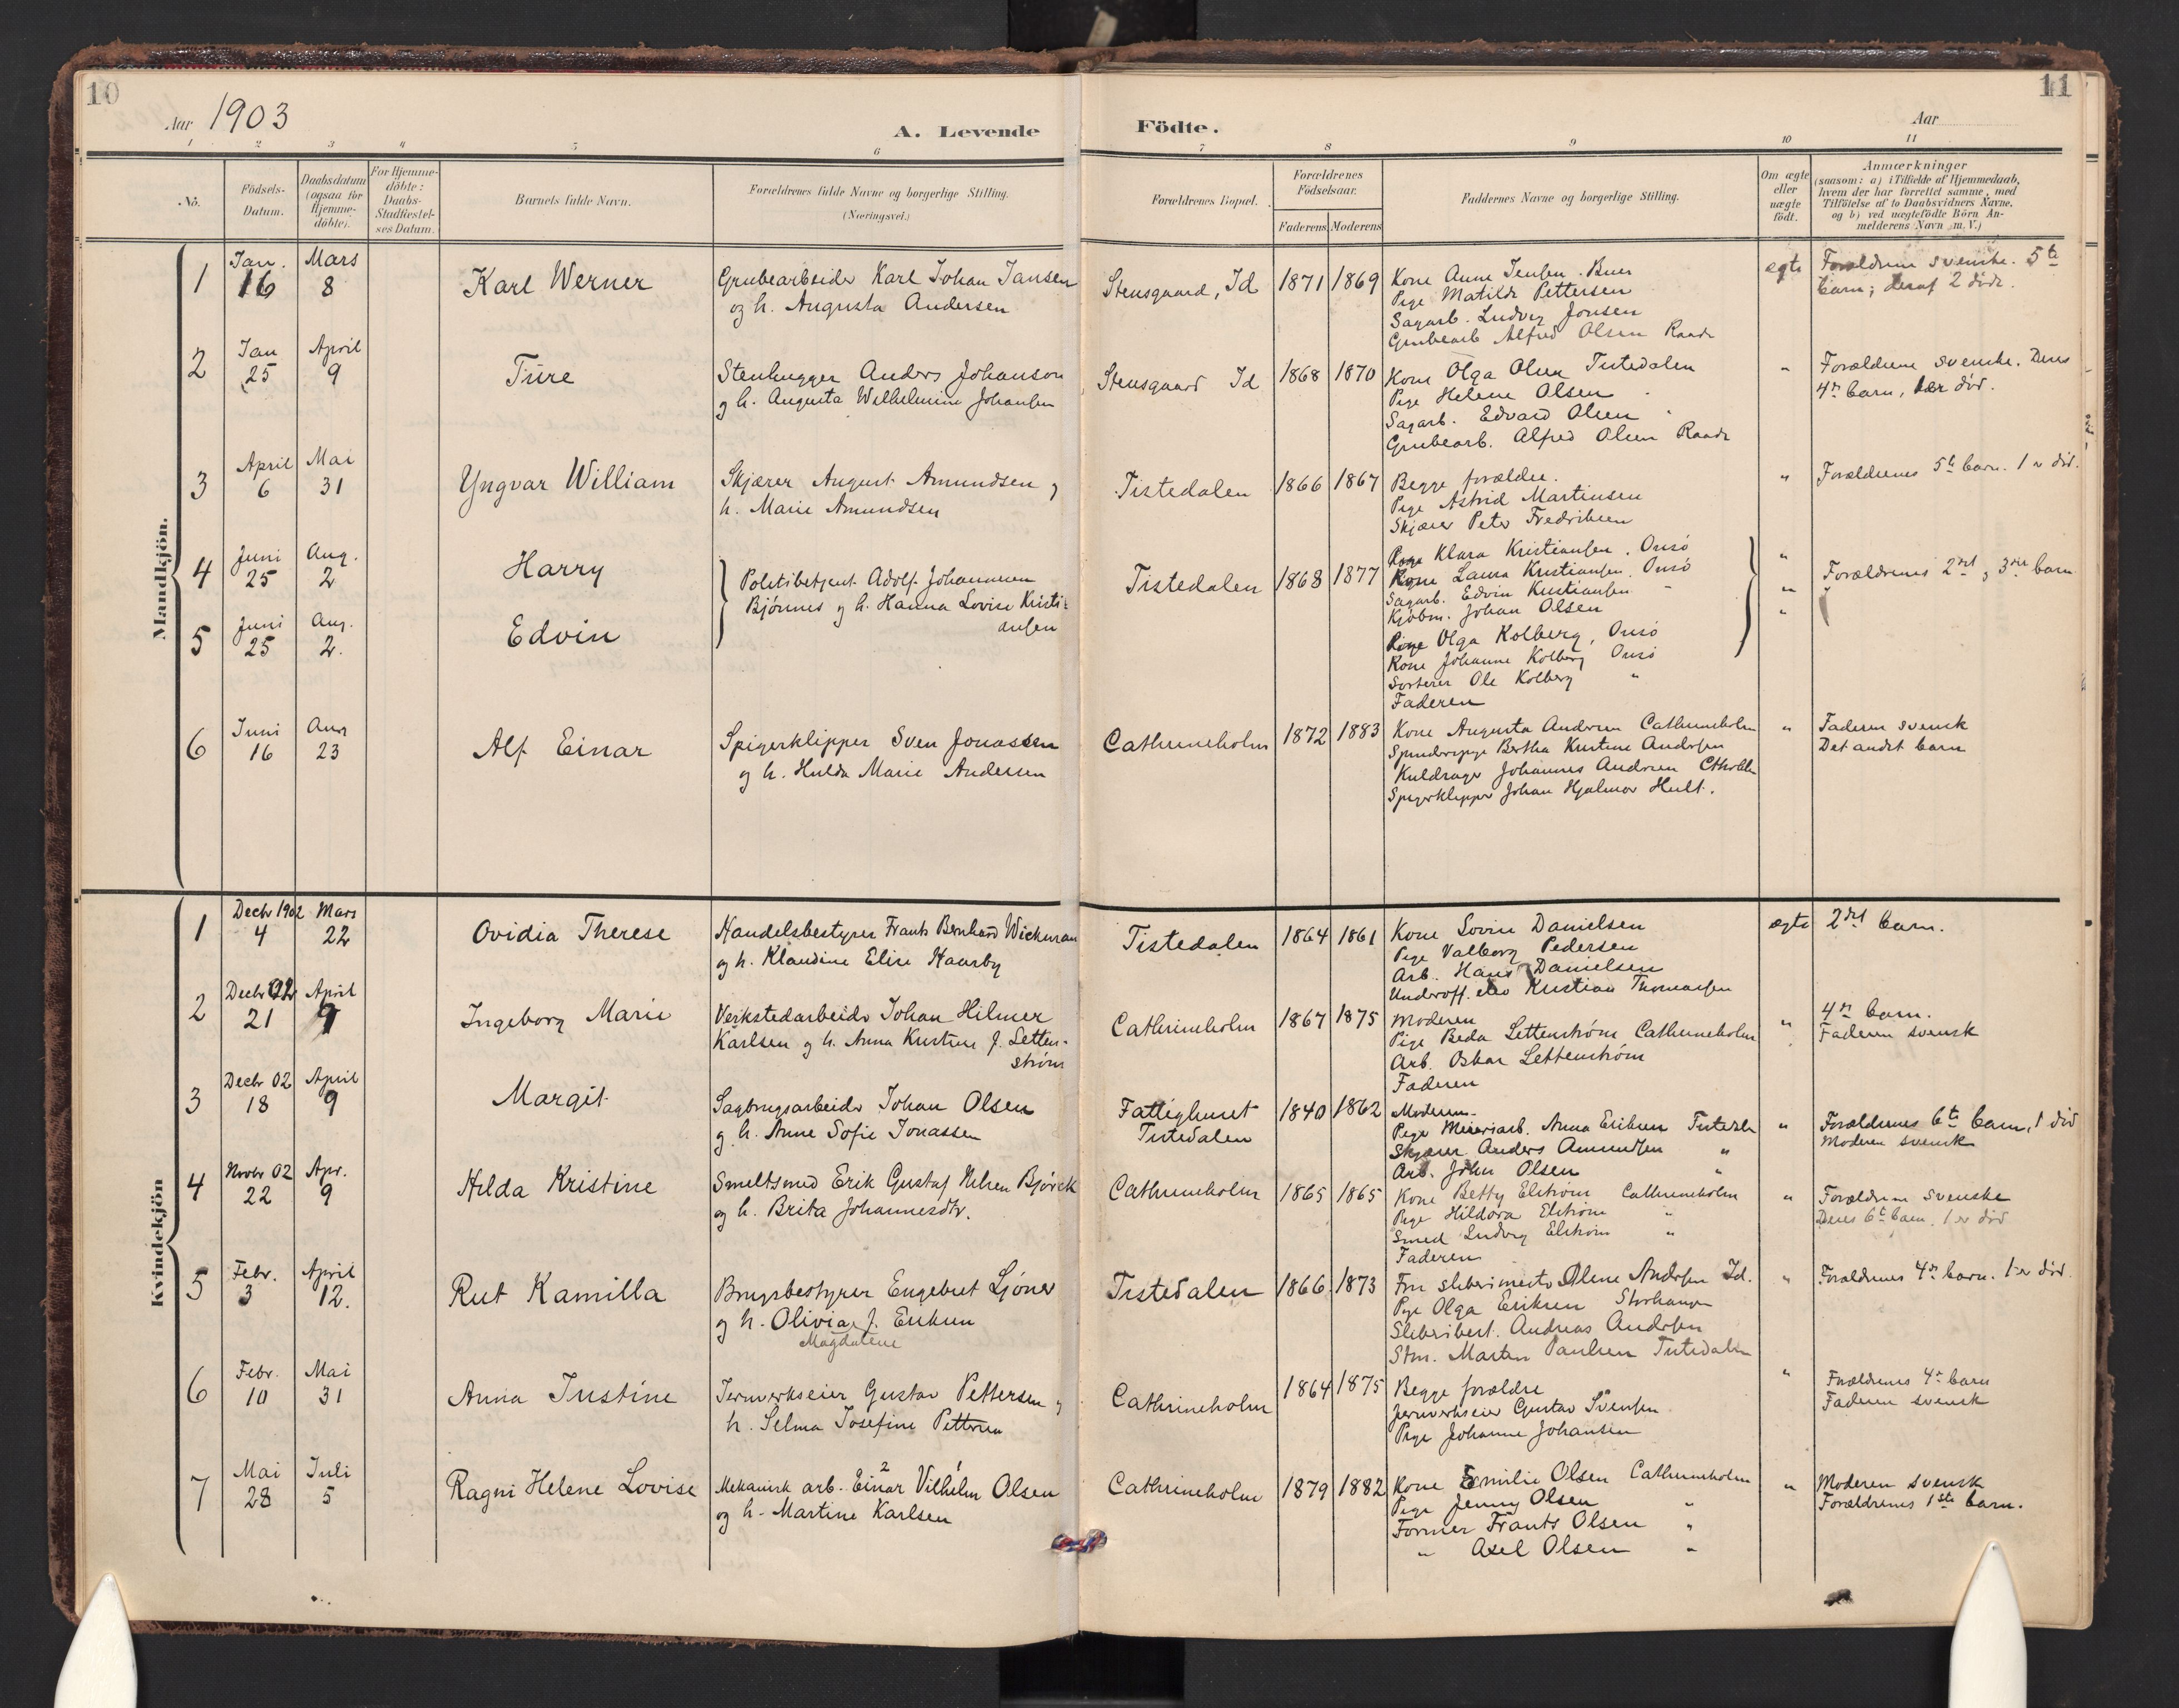 10
11
Aar 1903
A. Levende
Födte.
Aar
1 2 3 4 5 6 7 8 9 10 11
No.
Födsels-
Datum.
Daabsdatum
(ogsaa for
Hjemme-
döbte).
For Hjemme-
döbte:
Daabs-
Stadfæstel-
ses Datum.
Barnets fulde Navn.
Forældrenes fulde Navne og borgerlige Stilling.
(Næringsvei.)
Forældrenes Bopæl.
Forældrenes
Födselsaar.
Faderens
Moderens
Faddernes Navne og borgerlige Stilling.
Om ægte
eller
uægte
födt.
Anmærkninger
(saasom: a) i Tilfælde af Hjemmedaab,
hvem der har forrettet samme, med
Tilföielse af to Daabsvidners Navne,
og b) ved uægtefödte Börn An-
melderens Navn m. V.)
Mandkjön.
1
Jan. 16
Mars 8
Karl Werner
Grubearbeider Karl Johan Jansen
og h. Augusta Andersen
Stensgaard, Id
1871 1869
Kone Anne Jensen. Buer
Pige Matilde Pettersen
Sagarb. Ludvig Jonsen
Grubearb Alfred Olsen Raade
ægte
Forældrene svenske. 5te
barn; deraf 2 döde.
2
Jan 25
April 9
Ture
Stenhugger Anders Johanson
og h. Augusta Wilhelmine Johansen
Stensgaard Id
1868 1870
Kone Olga Olsen Tistedalen
Pige Helene Olsen
Sagarb. Edvard Olsen "
Grubearb. Alfred Olsen Raade
"
Forældrene svenske. Deres
4de barn, 1 er död.
3
April 6
Mai 31
Yngvar William
Skjærer August Amundsen og
h. Marie Amundsen
Tistedalen
1866 1867
Begge forældre.
Pige Astrid Martinsen
Skjærer Peter Fredriksen
"
Forældrenes 5te barn. 1 er död.
4
Juni 25
Aug. 2
Harry
Politibetjent Adolf Johannesen
Bjönnes og h. Hanna Lovise Kristi-
ansen
Tistedalen
1868 1877
Pige Klara Kristiansen. Onsö
Kone Laura Kristiansen. Onsö
Sagarb. Edvin Kristiansen "
Kjöbm. Johan Olsen
"
Forældrenes 2det og 3die barn
5
Juni 25
Aug. 2.
Edvin
Pige Olga Kolberg, Onsö
Kone Johanne Kolberg Onsö
Sorterer Ole Kolberg "
Faderen
6
Juni 16
Aug 23
Alf Einar
Spigerklipper Sven Jonassen
og h. Hulda Marie Andersen
Cathrineholm
1872 1883
Kone Augusta Andersen Cathrineholm
Spinderipige Bertha Kristine Andersen
Kuldrager Johannes Andersen
Spigerklipper Johan Hjalmar Hult.
"
Faderen svensk
Det andet barn
Kvindekjön
1
Decbr 1902 4
Mars 22
Ovidia Therese
Handelsbestyrer Frants Bernhard Wickman
og h. Klaudine Elise Haarby
Tistedalen
1864 1861
Kone Lovise Danielsen
Pige Valborg Pedersen
Arb. Hans Danielsen
Underoff. elev Kristian Thomassen
ægte
2det barn.
2
Decbr 02 21
April 9
Ingeborg Marie
Verkstedarbeider Johan Hilmer
Karlsen og h. Anna Kristine J. Letten-
ström
Cathrineholm
1867 1875
Moderen
Pige Beda Lettenström Cathrineholm
Arb. Oskar Lettenström
Faderen
"
4de barn.
Faderen svensk
3
Decbr 02 18
April 9
Margit
Sagbrugsarbeider Johan Olsen
og h. Anne Sofie Jonassen
Fattighuset
Tistedalen
1840 1862
Moderen
Pige Meieriarb. Anna Eriksen Tistedalen
Skjærer Anders Amundsen "
Arb. John Olsen "
"
Forældrenes 6te barn, 1 död
Moderen svensk
4
Novbr 02 22
Apr. 9
Hilda Kristine
Smeltsmed Erik Gustaf Nelsen Björck
og h. Brita Johannesdtr.
Cathrineholm
1865 1865
Kone Betty Elström Cathrineholm
Pige Hildora Elström "
Smed Ludvig Elström "
Faderen
"
Forældrene svenske
Deres 6te barn. 1 er död
5
Febr. 3
April 12.
Rut Kamilla
Brugsbestyrer Engebret Sjöner
og h. Olivia J. Eriksen
Magdalene
Tistedalen
1866 1873
Fru slibermester Oline Andersen Id.
Pige Olga Eriksen
Sliberibest. Andreas Andersen
Stm. Marten Paulsen Tistedalen
"
Forældrenes 4de barn. 1 er död.
6
Febr. 10
Mai 31
Anna Justine
Jernverkseier Gustav Pettersen og
h. Selma Josefine Pettersen
Cathrineholm
1864 1875
Begge forældre
Jernverkseier Gustav Svensen
Pige Johanne Johansen
"
Forældrenes 4de barn
Faderen svensk
7
Mai 28
Juli 5
Ragni Helene Lovise
Mekanisk arb. Einar Vilhelm Olsen
og h. Martine Karlsen
Cathrineholm
1879 1882
Kone Emilie Olsen Cathrineholm
Pige Jenny Olsen "
Former Frants Olsen "
" Axel Olsen "
"
Moderen svensk
Forældrenes 1ste barn.